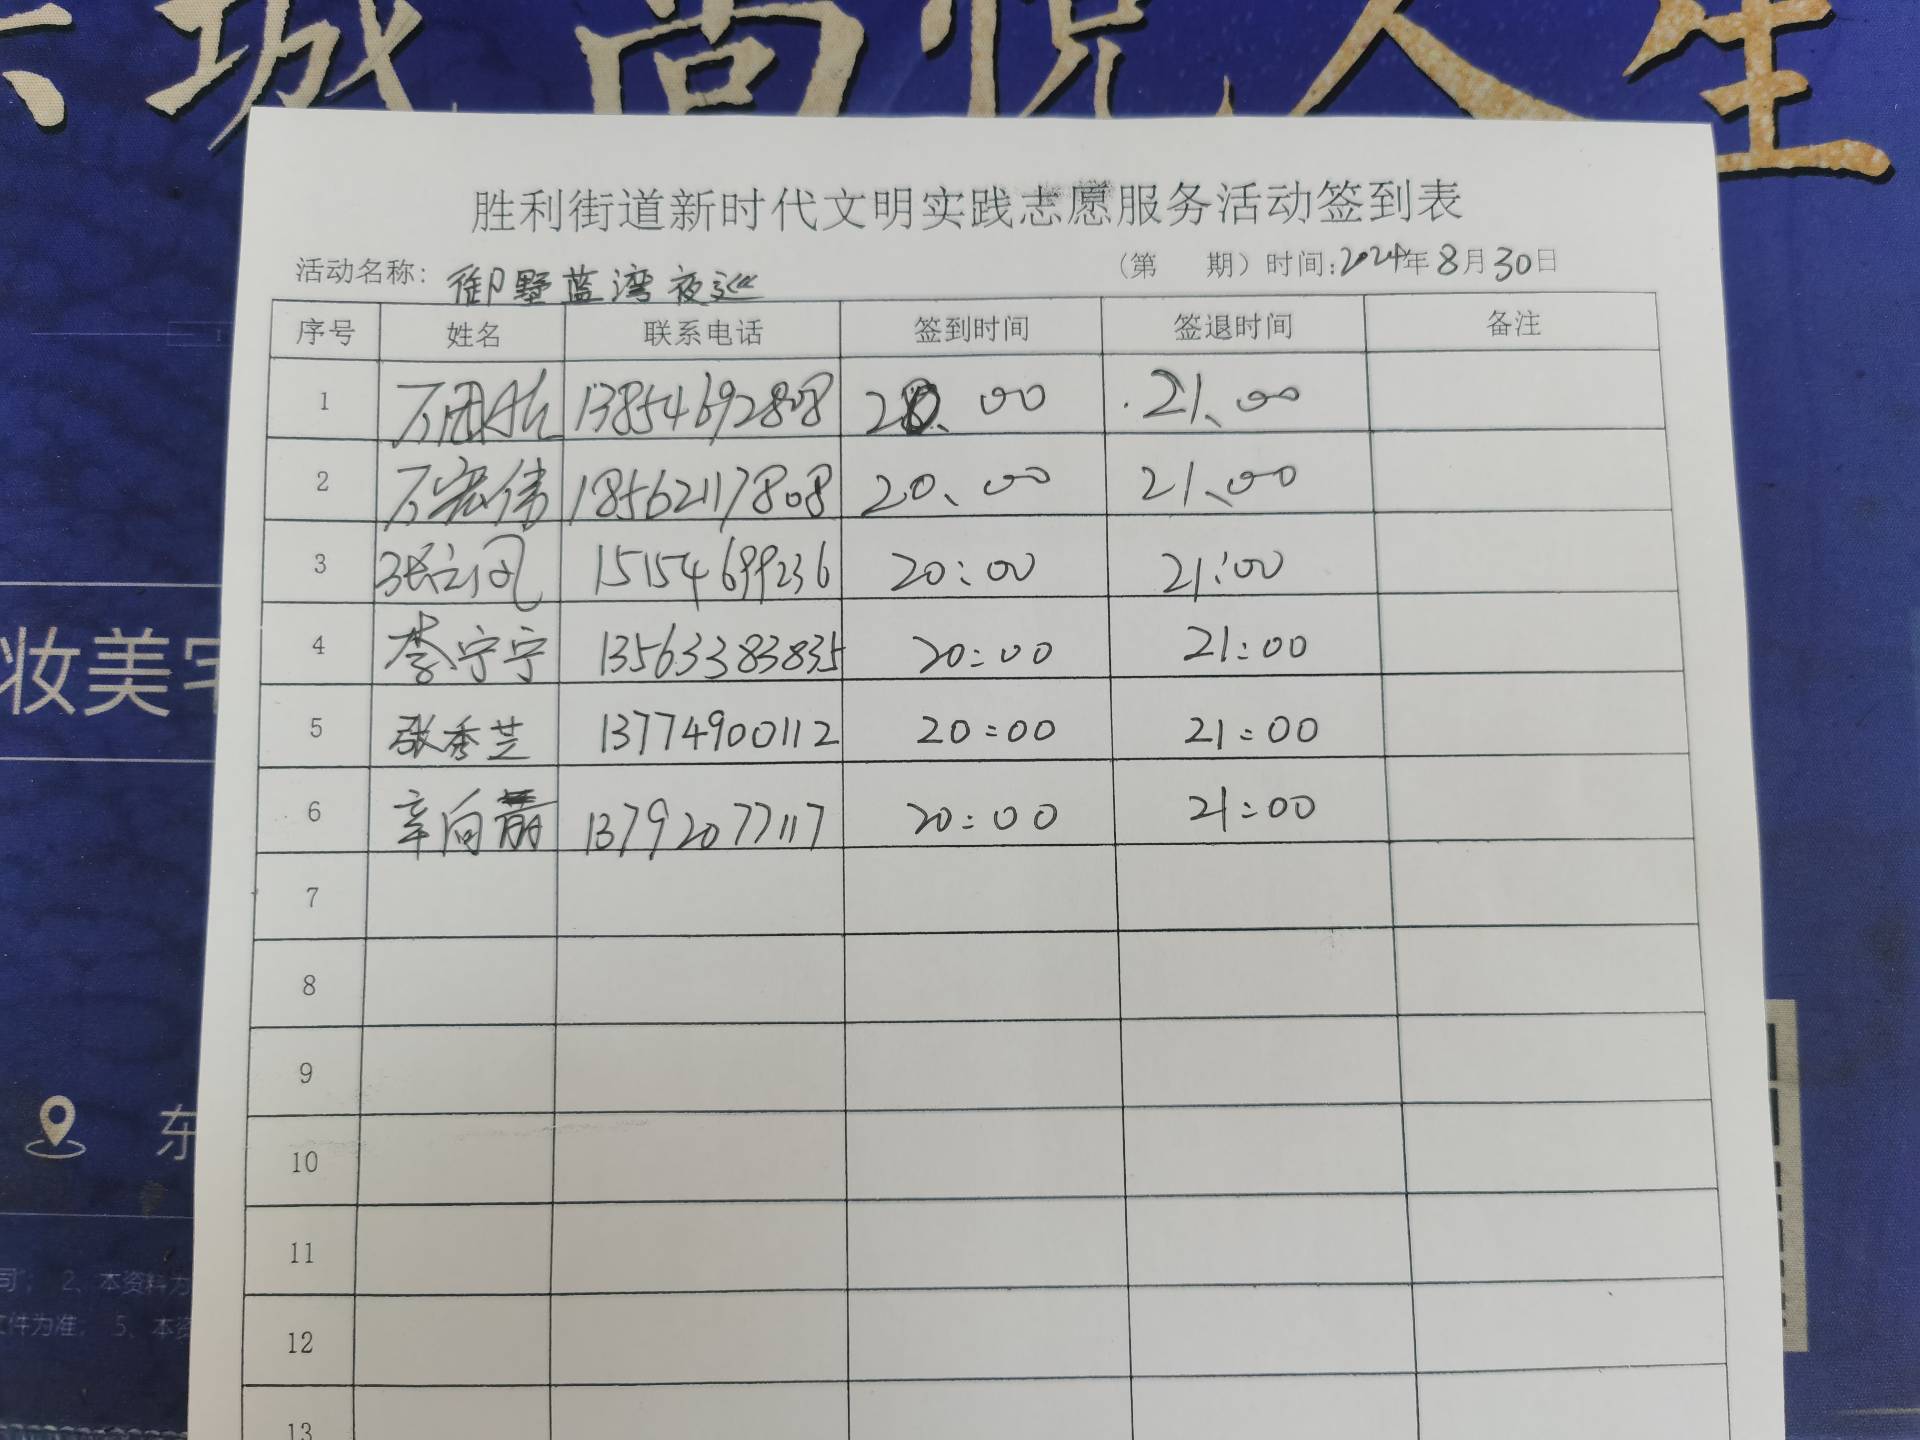 城 尚悦人生
胜利街道新时代文明实践志愿服务活动签到表
活动名称: 御墅蓝湾夜巡 (第 期) 时间:2024年8月30日
序号 姓名 联系电话 签到时间 签退时间 备注
1 13854692808 20、00 21、00
2 万宏伟 18562117808 20、00 21、00
3 张立凤 15154699236 20:00 21:00
4 李宁宁 13563383835 20:00 21:00
5 张秀芝 13774900112 20:00 21:00
6 辛向前 13792077117 20:00 21:00
7
8
9
10
11
12
13
妆美宅
东
司; 2、本资料为
文件为准; 5、本资